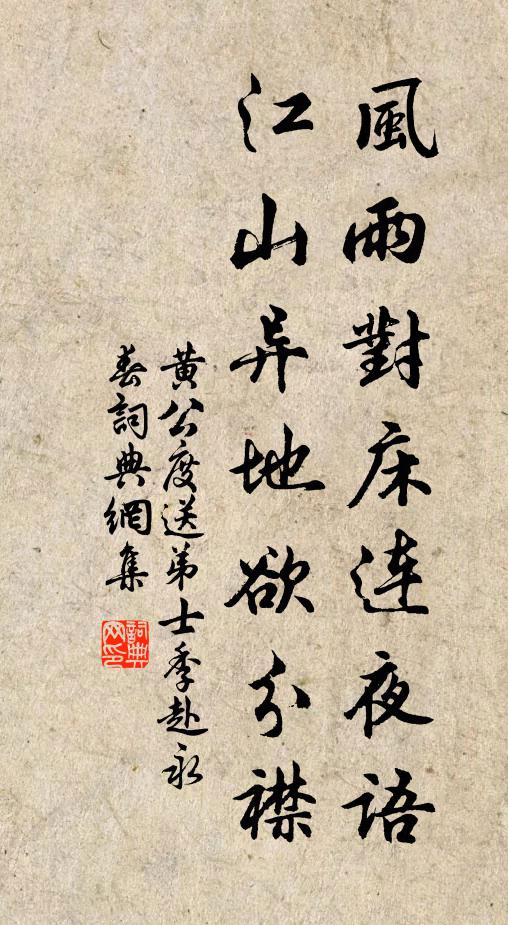 風雨對床连夜语
江山异地欲分襟
黄公度送弟士季赴永
春詞典網集
詞典
网印